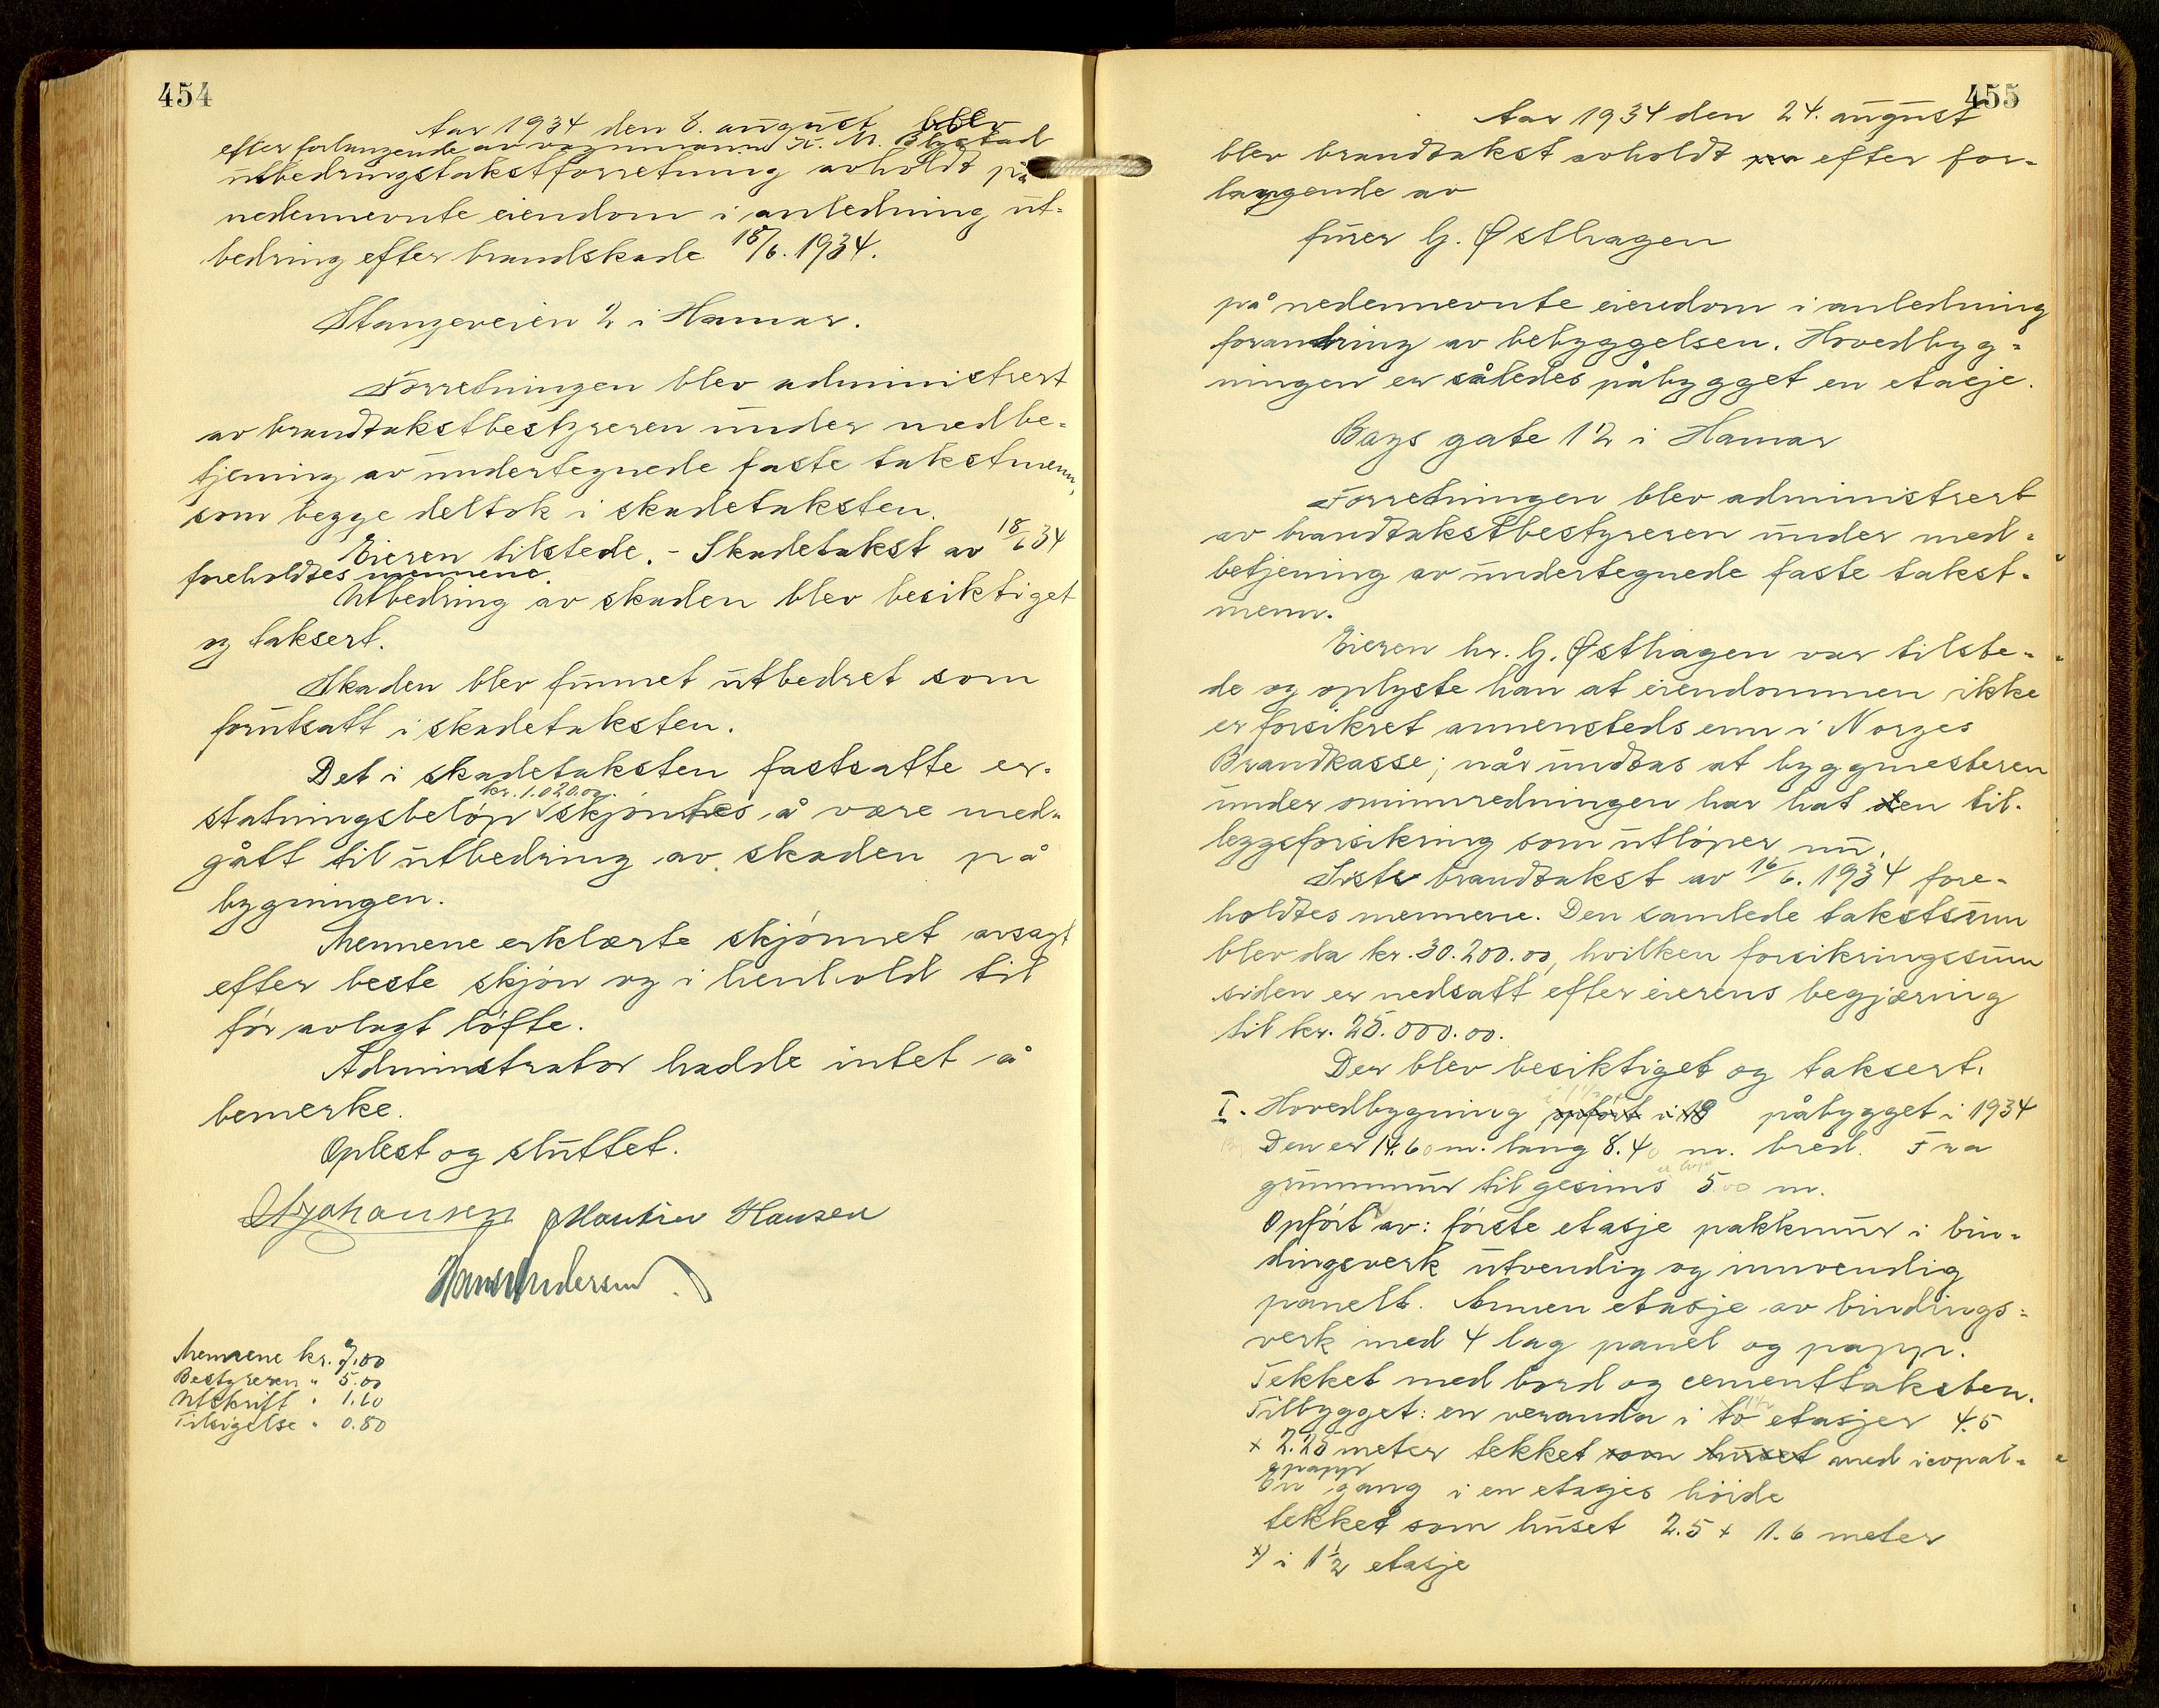 454
Aar 1934 den 8. august blev
efter forlangende av vognmann K. M. Blystad
utbedringstakstforretning avholdt på
nedennevnte eiendom i anledning ut-
bedring efter brandskade 18/6. 1934.
Stangeveien 2 i Hamar.
Forretningen blev administrert
av brandtakstbestyreren under medbe-
tjening av undertegnede faste takstmenn,
som begge deltok i skadetaksten.
Eieren tilstede. - Skadetakst av 18/6 34
foreholdtes mennene.
Utbedring av skaden blev besiktiget
og taksert.
Skaden blev funnet utbedret som
forutsatt i skadetaksten.
Det i skadetaksten fastsatte er-
kr. 1.020.00
statningsbeløp skjøntes å være med-
gått til utbedring av skaden på
bygningen.
Mennene erklærte skjønnet avsagt
efter beste skjøn og i henhold til
før avlagt løfte.
Adminstrator hadde intet å
bemerke.
Oplest og sluttet.
Johansen Martin Hansen
Hans Andersen
Mennene kr. 7.00
Bestyreren " 5.00
Utskrift " 1.10
Tilsigelse " 0.80
455
Aar 1934 den 24. august
blev brandtakst avholdt efter for-
langende av
furer G. Østhagen
på nedennevnte eiendom i anledning
forandring av bebyggelsen. Hovedbyg-
ningen er således påbygget en etasje.
Bays gate 12 i Hamar
Forretningen blev administrert
av brandtakstbestyreren under med-
betjening av undertegnede faste takst-
menn.
Eieren hr. G. Østhagen var tilste-
de og oplyste han at eiendommen ikke
er forsikret annensteds enn i Norges
Brandkasse; når undtas at byggmesteren
under ominnredningen har hat en til-
leggsforsikring som utløper nu.
Siste brandtakst av 16/6. 1934 fore-
holdtes mennene. Den samlede takstsum
blev da kr. 30.200.00, hvilken forsikringssum
siden er nedsatt efter eierens begjæring
til kr. 25.000.00.
Der blev besiktiget og taksert.
I. Hovedbygning opført i 18 påbygget i 1934
Den er 14.60 m. lang 8.40 m. bred. Fra
grunnmur til gesims 5.00 m.
Opført av: første etasje pakkmur i bin-
dingsverk utvendig og innvendig
panelt. Annen etasje av bindings-
verk med 4 lag panel og papp.
Tekket med bord og cementtaksten.
Tilbygget: en veranda i to etasjer 4.5
x 2.25 meter tekket som huset med icopal-
papp
En gang i en etasjes høide
tekket som huset 2.5 x 1.6 meter
x) i 1 1/2 etasje